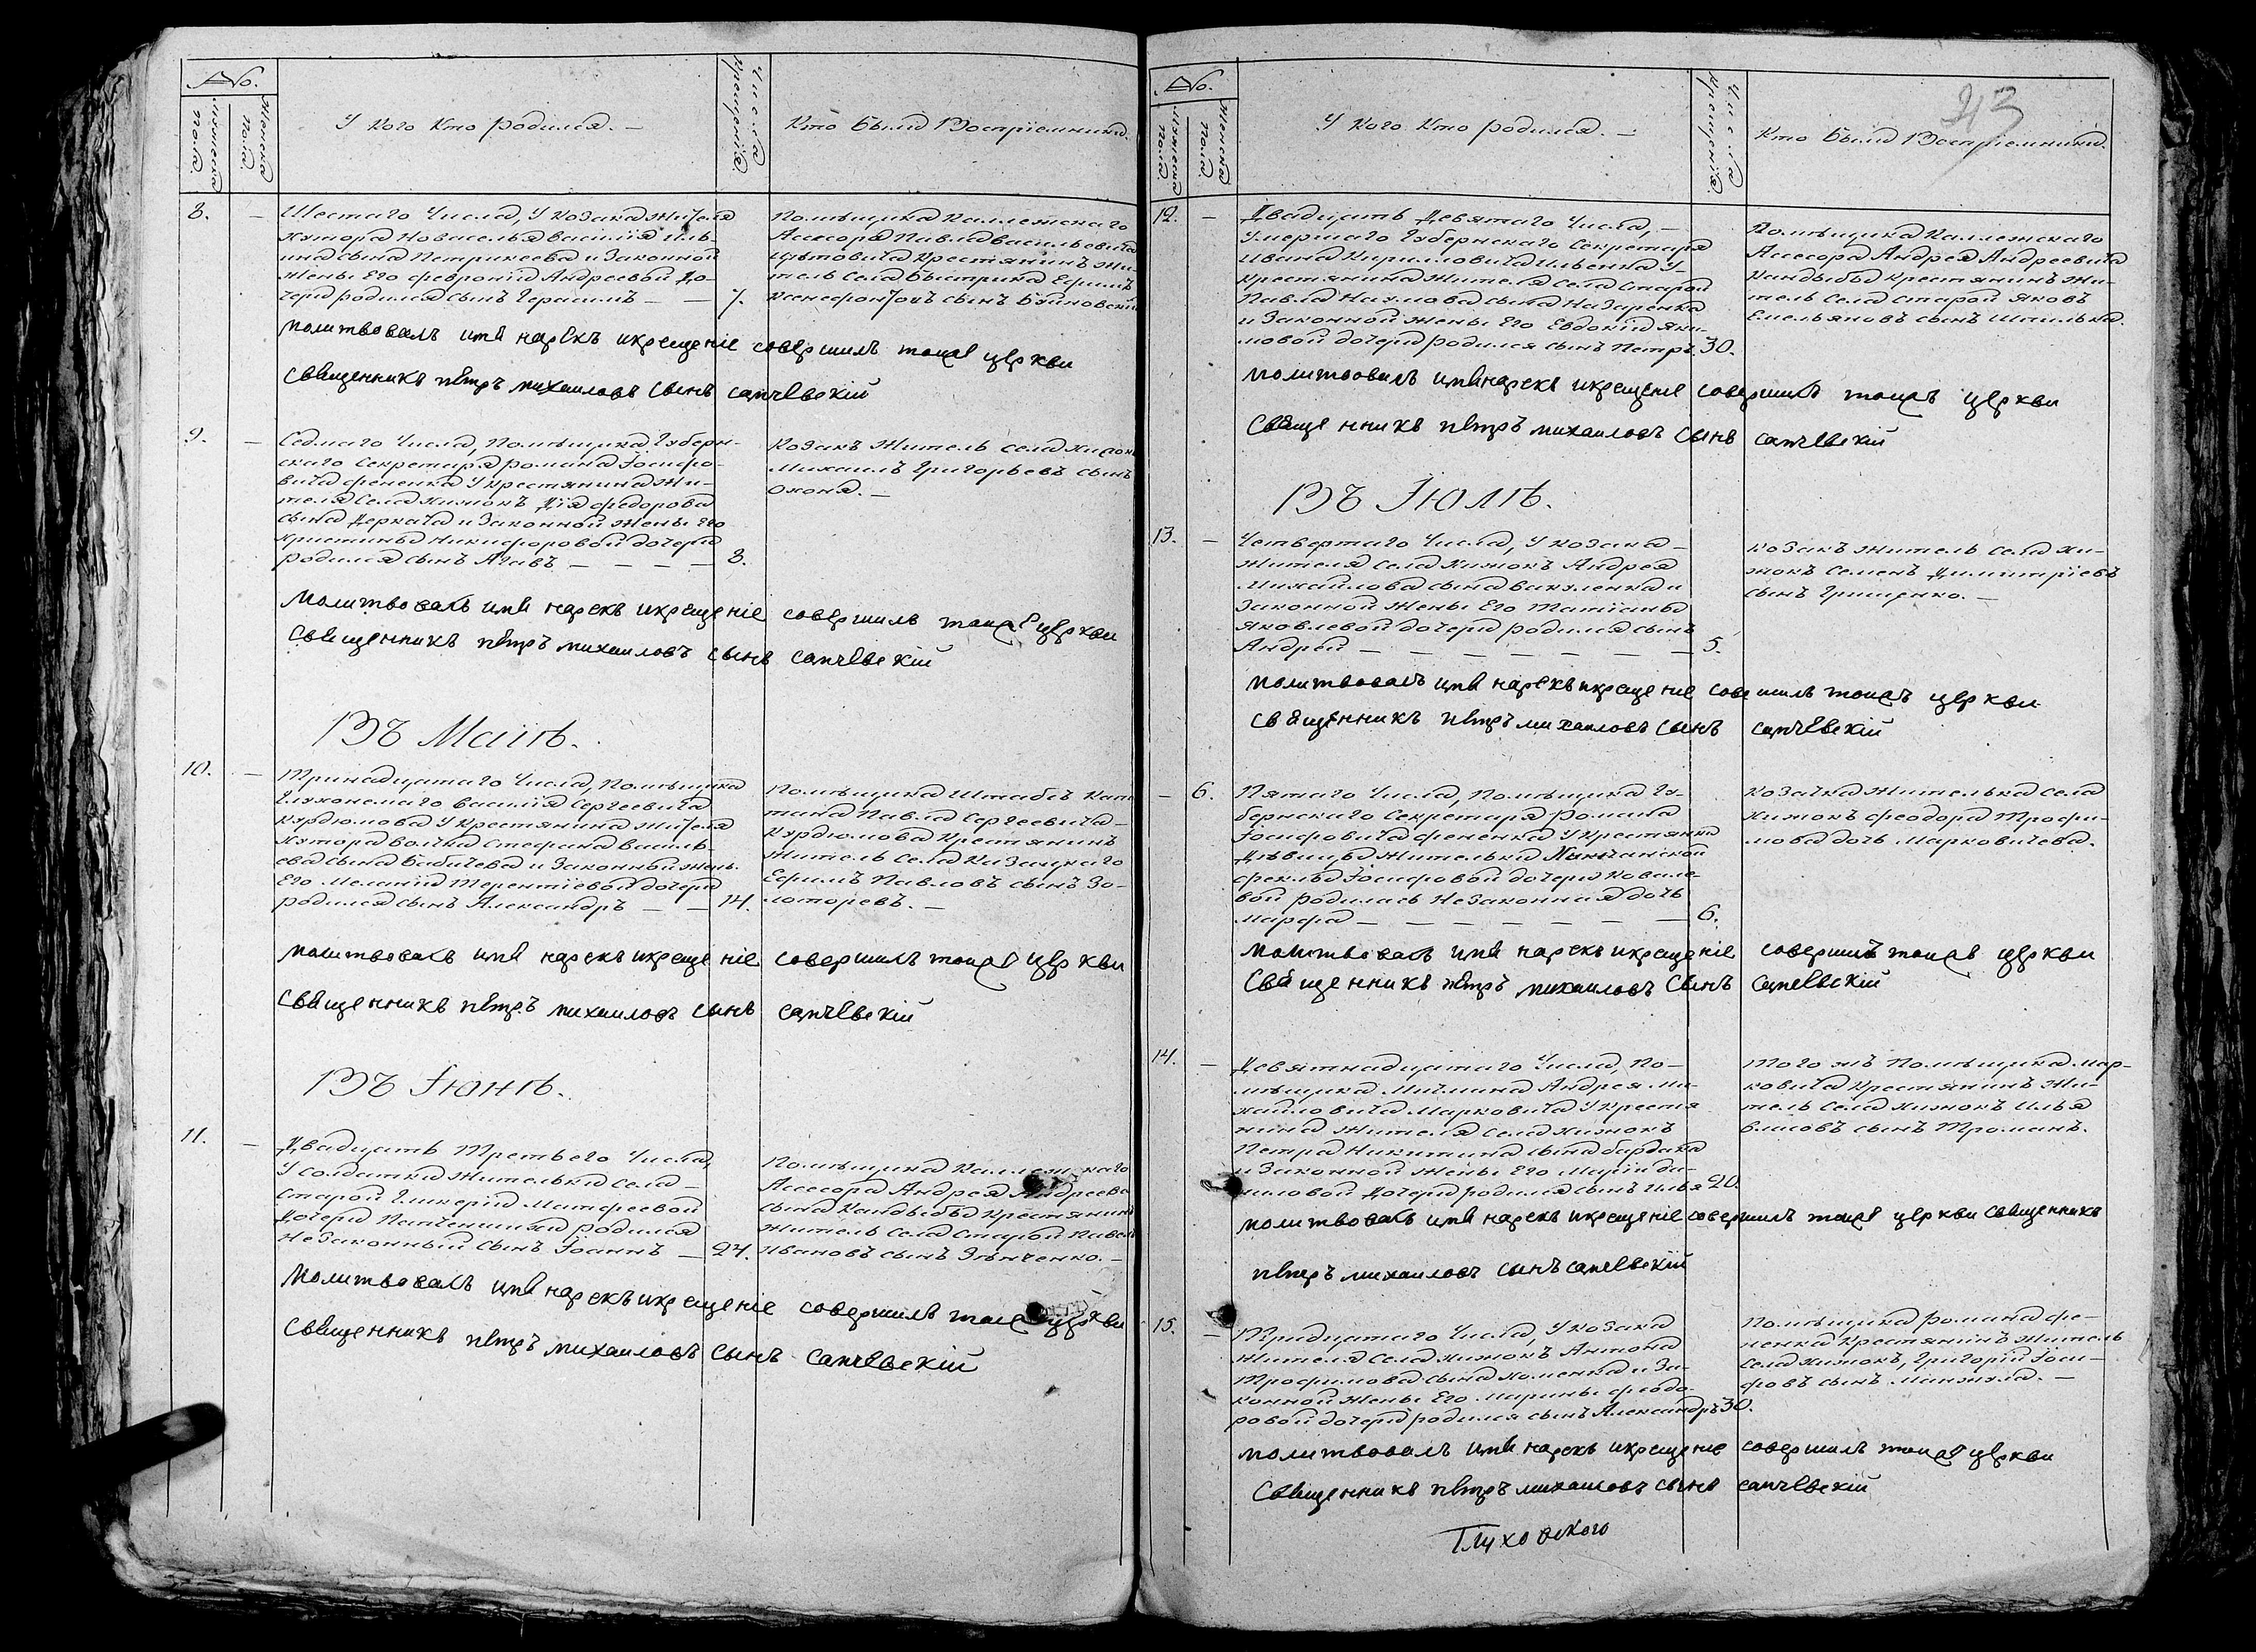 No.
Мужеска пола.
Женска пола.
У кого кто родился. —
Числа крещенія.
Кто были Восприемники.
8. — Шестаго Числа, У козака жителя
хутора Новоселья Василія Иль-
ина сына Петрикеева и Законной
жены Его Февроніи Андреевой до-
чери родился сынъ Герасимъ — — 7.
Помѣщика Коллежскаго
Асесора Павла Васильевича
крестьянинъ жи-
тель села Быстрика Ефимъ
Ксенофонтовъ сынъ
молитвовалъ имя нарекъ и крещеніе совершилъ тоея церкви
священникъ петръ михаиловъ сынъ сапчевскій
9. — Седмаго Числа, Помѣщика Губерн-
скаго Секретаря Романа Іосифо-
вича Фененка У крестьянина жи-
теля Села Хижокъ Дія Федорова
сына Деркача и Законной жены Его
Христины Никифоровой дочери
родился сынъ Агавъ — — — — 8.
Козакъ житель села Хижокъ
Михаилъ Григорьевъ сынъ
Охоня. —
молитвовалъ имя нарекъ и крещеніе совершилъ тоея церкви
священникъ петръ михаиловъ сынъ сапчевскій
Въ Маіѣ.
10. — Тринадцатаго Числа, Помѣщика
Глухонемаго Василія Сергеевича
Курдюмова У крестьянина жителя
хутора Волчка Стефана Василь-
ева сына Бабичева и Законной жены
Его Меланіи Терентіевой дочери
родился сынъ Александръ — — 14.
Помѣщика Штабсъ Капи
тана Павла Сергеевича —
Курдюмова крестьянинъ
житель села Казацкаго
Ефимъ Павловъ сынъ Зо-
лоторевъ. —
молитвовалъ имя нарекъ и крещеніе совершилъ тоея церкви
священникъ петръ михаиловъ сынъ сапчевскій
Въ Іюнѣ.
11. — Двадцать Третьего Числа,
У солдатки жительки села —
Старой Гликеріи Матфеевой
дочери родился
Незаконный сынъ Іоаннъ — 24.
Помѣщика Коллежскаго
Асесора Андрея Андреева
сына Кандыбы крестьянинъ
житель села Старой Павелъ
Ивановъ сынъ
молитвовалъ имя нарекъ и крещеніе совершилъ тоея церкви
священникъ петръ михаиловъ сынъ сапчевскій
43
No.
Мужеска пола.
Женска пола.
У кого кто родился. —
Числа крещенія.
Кто были Восприемники.
12. — Двадцать Девятаго Числа, —
Умершаго Губернскаго Секретаря
Ивана Кирилловича Ильенка У-
крестьянина жителя села Старой
Павла Наумова сына Назаренка
и Законной жены Его Евдокіи Яки-
мовой дочери родился сынъ Петръ 30.
Помѣщика Коллежскаго
Асесора Андрея Андреевича
Кандыбы крестьянинъ жи-
тель села Старой Яковъ
Емельяновъ сынъ Шпилька.
молитвовалъ имя нарекъ и крещеніе совершилъ тоея церкви
священникъ петръ михаиловъ сынъ сапчевскій
Въ Іюлѣ.
13. — Четвертаго Числа, У козака —
жителя села Хижокъ Андрея
Михайлова сына Вакуленка и
Законной жены Его Татіаны
Яковлевой дочери родился сынъ
Андрей — — — — — — — 5.
Козакъ житель села Хи-
жокъ Семенъ Димитріевъ
сынъ Грищенко. —
молитвовалъ имя нарекъ и крещеніе совешилъ тоея церкви
священникъ петръ михаиловъ сынъ сапчевскій
— 6. Пятаго Числа, Помѣщика Гу-
бернскаго Секретаря Романа
Іосифовича Фененка У крестьянки
Дѣвицы жительки
Феклы Іосифовой дочери Ковале-
вой родилась Незаконная дочь
Марфа — — — — — — — 6.
Козачка жителька села
Хижокъ Феодора Трофи-
мова дочь Марковичева.
молитвовалъ имя нарекъ и крещеніе совершилъ тоея церкви
священникъ петръ михаиловъ сынъ сапчевскій
14. — Девятнадцатаго Числа, По-
мѣщика Мичмана Андрея Ми-
хайловича Марковича У крестья
нина жителя села Хижокъ
Петра Никитина сына Бардака
и Законной жены Его Маріи Да-
ниловой дочери родился сынъ Илья 20.
Того жъ Помѣщика Мар-
ковича крестьянинъ жи-
тель села Хижокъ Илья
Власовъ сынъ Троманъ.
молитвовалъ имя нарекъ и крещеніе совершилъ тоея церкви священникъ
петръ михаиловъ сынъ сапчевскій
15. — Тридцатаго Числа, У козака
жителя села Хижокъ Антона
Трофимова сына Хоменка и За-
конной жены Его Марины Феодо-
ровой дочери родился сынъ Александръ 30.
Помѣщика Романа Фе-
ненка крестьянинъ житель
села Хижокъ, Григорій Іоси-
фовъ сынъ Манжула. —
молитвовалъ имя нарекъ и крещеніе совершилъ тоея церкви
священникъ петръ михаиловъ сынъ сапчевскій
Глуховского